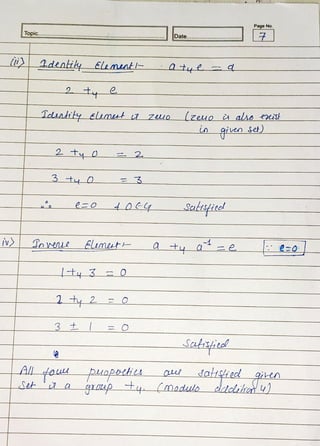 Topic
Date
Page No.
7
(iii) Identity Element:- a +₄ e = a
2 +₄ e
Identity element is zero (zero is also exist
in given set)
2 +₄ 0 = 2
3 +₄ 0 = 3
∴ e=0 & 0 ∈ G Satisfied
iv) Inverse Element:- a +₄ a⁻¹ = e [∵ e=0]
1 +₄ 3 = 0
2 +₄ 2 = 0
3 ± 1 = 0
Satisfied
All four properties are satisfied given
Set is a group +₄. (modulo addition 4)